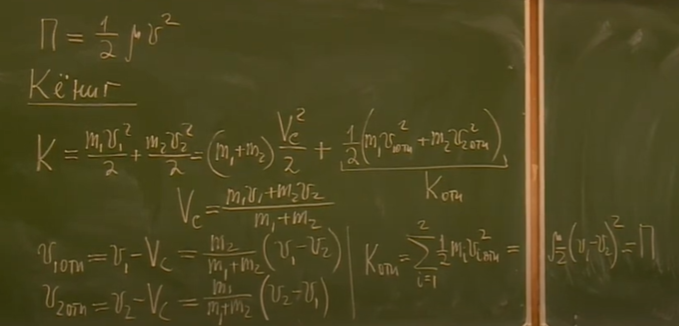 П = 1/2 μv²
Кёниг
K = m₁v₁²/2 + m₂v₂²/2 = (m₁+m₂) V_c²/2 + 1/2(m₁v₁отн² + m₂v₂отн²)
Kотн
V_c = (m₁v₁+m₂v₂)/(m₁+m₂)
v₁отн = v₁ - V_c = m₂/(m₁+m₂) (v₁-v₂)
v₂отн = v₂ - V_c = m₁/(m₁+m₂) (v₂-v₁)
Kотн = Σ_{i=1}^{2} 1/2 mᵢvᵢотн² = μ/2 (v₁-v₂)² = П